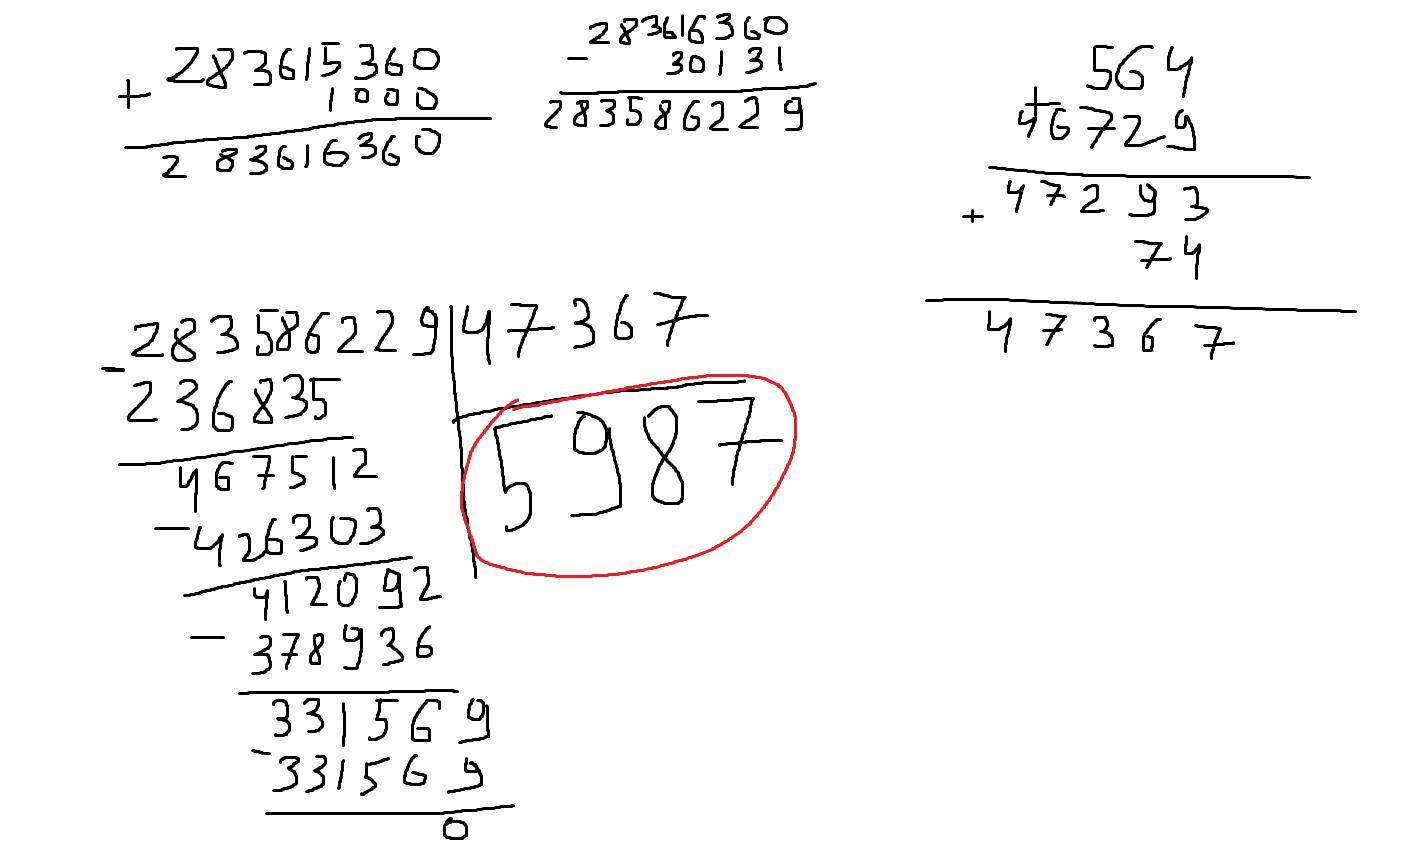 283615360
+ 1000
283616360
283616360
- 30131
283586229
564
+ 46729
47293
+ 74
47367
283586229 | 47367
- 236835
5987
467512
- 426303
412092
- 378936
331569
- 331569
0